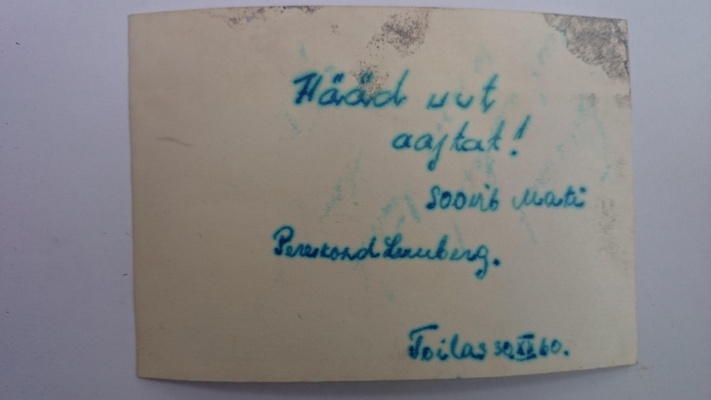 Hääd uut
aajtat!
Soovib Mati
Perekond Lemberg.
Toilas 30 XII 60.